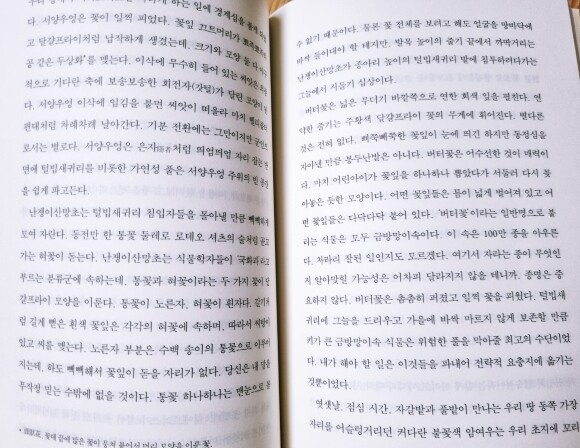 다. 서양우엉은 꽃이 일찍 피었다. 꽃잎 끄트머리가
고 달걀프라이처럼 납작하게 생겼는데, 크기와 모양 둘 다
콩 같은 두상화*를 맺는다. 이삭에 무수히 들어 있는 씨앗은
적으로 기다란 축에 보송보송한 회전자(갓털)가 달린 모양이
다. 서양우엉 이삭에 입김을 불면 씨앗이 떠올라 마치
편대처럼 차례차례 날아간다. 기분 전환에는 그만이지만
로서는 별로다. 서양우엉은 은자隱者처럼 띄엄띄엄 자리 잡는
면에 털빕새귀리를 비롯한 가연성 풀은 서양우엉 주위의 빈 공간
을 쉽게 파고든다.
난쟁이산망초는 털빕새귀리 침입자들을 몰아낼 만큼 빽빽하게
모여 자란다. 동전만 한 통꽃 둘레로 로데오 셔츠의 술처럼 곱고
가는 혀꽃이 돋는다. 난쟁이산망초는 식물학자들이 '국화과'라고
부르는 분류군에 속하는데, 통꽃과 혀꽃이라는 두 가지 꽃이 달
걀프라이 모양을 이룬다. 통꽃이 노른자, 혀꽃이 흰자다. 깃털처
럼 길게 뻗은 흰색 꽃잎은 각각의 혀꽃에 속하며, 따라서 씨방이
있고 씨를 맺는다. 노른자 부분은 수백 송이의 통꽃으로 이루어
지는데, 하도 빽빽해서 꽃잎이 돋을 자리가 없다. 당신은 내 말을
무작정 믿는 수밖에 없을 것이다. 통꽃 하나하나는 맨눈으로 볼
* 頭狀花. 꽃대 끝에 많은 꽃이 뭉쳐 붙어서 머리 모양을 이룬 꽃.
수 없기 때문이다. 물론 꽃 전체를 보려고 해도 얼굴을 땅바닥에
바짝 들이대야 할 테지만, 발목 높이의 줄기 끝에서 까딱거리는
난쟁이산망초가 종아리 높이의 털빕새귀리 밭에 침투하려다가는
그늘에서 시들기 십상이다.
버터꽃은 넓은 무더기 바깥쪽으로 연한 회색 잎을 펼친다. 연
약한 줄기는 주황색 달걀프라이 꽃의 무게에 휘어진다. 별다른
것은 전혀 없다. 삐쭉삐쭉한 꽃잎이 눈에 띄긴 하지만 동정심을
자아낼 만큼 볼품없진 않다. 버터꽃은 어수선한 것이 매력이
다. 마치 어린아이가 꽃잎을 하나하나 뽑았다가 서둘러 다시 꽂
아놓은 듯한 모양이다. 어떤 꽃잎들은 틈이 넓게 벌어져 있고 어
떤 꽃잎들은 다닥다닥 붙어 있다. '버터꽃'이라는 일반명으로 불
리는 식물은 모두 금방망이속이다. 이 속은 100만 종을 아우른
다. 차라리 잘된 일인지도 모르겠다. 여기서 자라는 종이 무엇인
지 알아맞힐 가능성은 어차피 달라지지 않을 테니까. 종명은 중
요하지 않다. 버터꽃은 촘촘히 퍼졌고 일찍 꽃을 피웠다. 털빕새
귀리에 그늘을 드리우고 가을에 바싹 마르지 않게 보존할 만큼
키가 큰 금방망이속 식물은 위험한 풀을 막아줄 최고의 수단이었
다. 내가 해야 할 일은 이것들을 파내어 전략적 요충지에 옮기는
것뿐이었다.
엿샛날, 점심 시간, 자갈밭과 풀밭이 만나는 우리 땅 동쪽 가장
자리를 어슬렁거리던 커다란 불곷색 암여우는 우리 초지에 꼬리